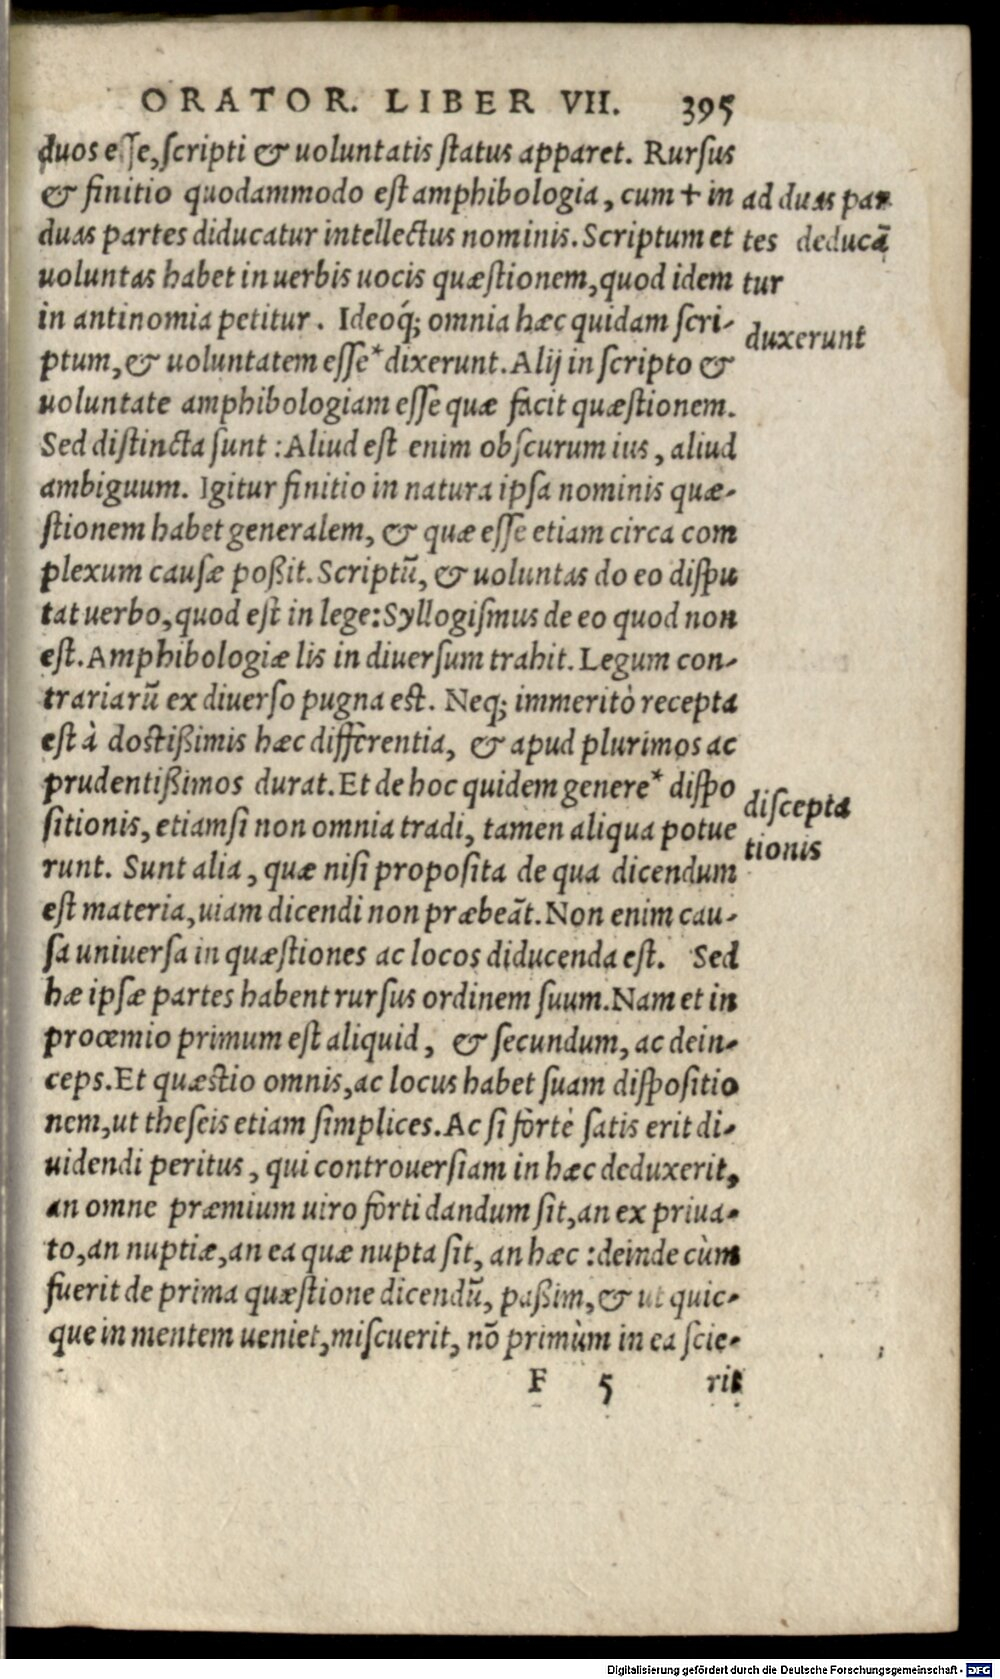 ORATOR. LIBER VII. 395
duos esse, scripti & uoluntatis status apparet. Rursus
& finitio quodammodo est amphibologia, cum + in
duas partes diducatur intellectus nominis. Scriptum et
uoluntas habet in uerbis uocis quæstionem, quod idem
in antinomia petitur. Ideoq́; omnia hæc quidam scri-
ptum, & uoluntatem esse* dixerunt. Alij in scripto &
uoluntate amphibologiam esse quæ facit quæstionem.
Sed distincta sunt : Aliud est enim obscurum ius, aliud
ambiguum. Igitur finitio in natura ipsa nominis quæ-
stionem habet generalem, & quæ esse etiam circa com
plexum causæ poßit. Scriptũ, & uoluntas do eo dispu
tat uerbo, quod est in lege: Syllogismus de eo quod non
est. Amphibologiæ lis in diuersum trahit. Legum con-
trariarũ ex diuerso pugna est. Neq; immeritò recepta
est à doctißimis hæc differentia, & apud plurimos ac
prudentißimos durat. Et de hoc quidem genere* dispo
sitionis, etiamsi non omnia tradi, tamen aliqua potue
runt. Sunt alia, quæ nisi proposita de qua dicendum
est materia, uiam dicendi non præbeãt. Non enim cau-
sa uniuersa in quæstiones ac locos diducenda est. Sed
hæ ipsæ partes habent rursus ordinem suum. Nam et in
proœmio primum est aliquid, & secundum, ac dein-
ceps. Et quæstio omnis, ac locus habet suam dispositio
nem, ut theseis etiam simplices. Ac si fortè satis erit di-
uidendi peritus, qui controuersiam in hæc deduxerit,
an omne præmium uiro forti dandum sit, an ex priua-
to, an nuptiæ, an ea quæ nupta sit, an hæc : deinde cùm
fuerit de prima quæstione dicendũ, paßim, & ut quic-
que in mentem ueniet, miscuerit, nõ primùm in ea scie-
F 5 rit
ad duas par
tes deducã
tur
duxerunt
discepta
tionis
Digitalisierung gefördert durch die Deutsche Forschungsgemeinschaft - DFG